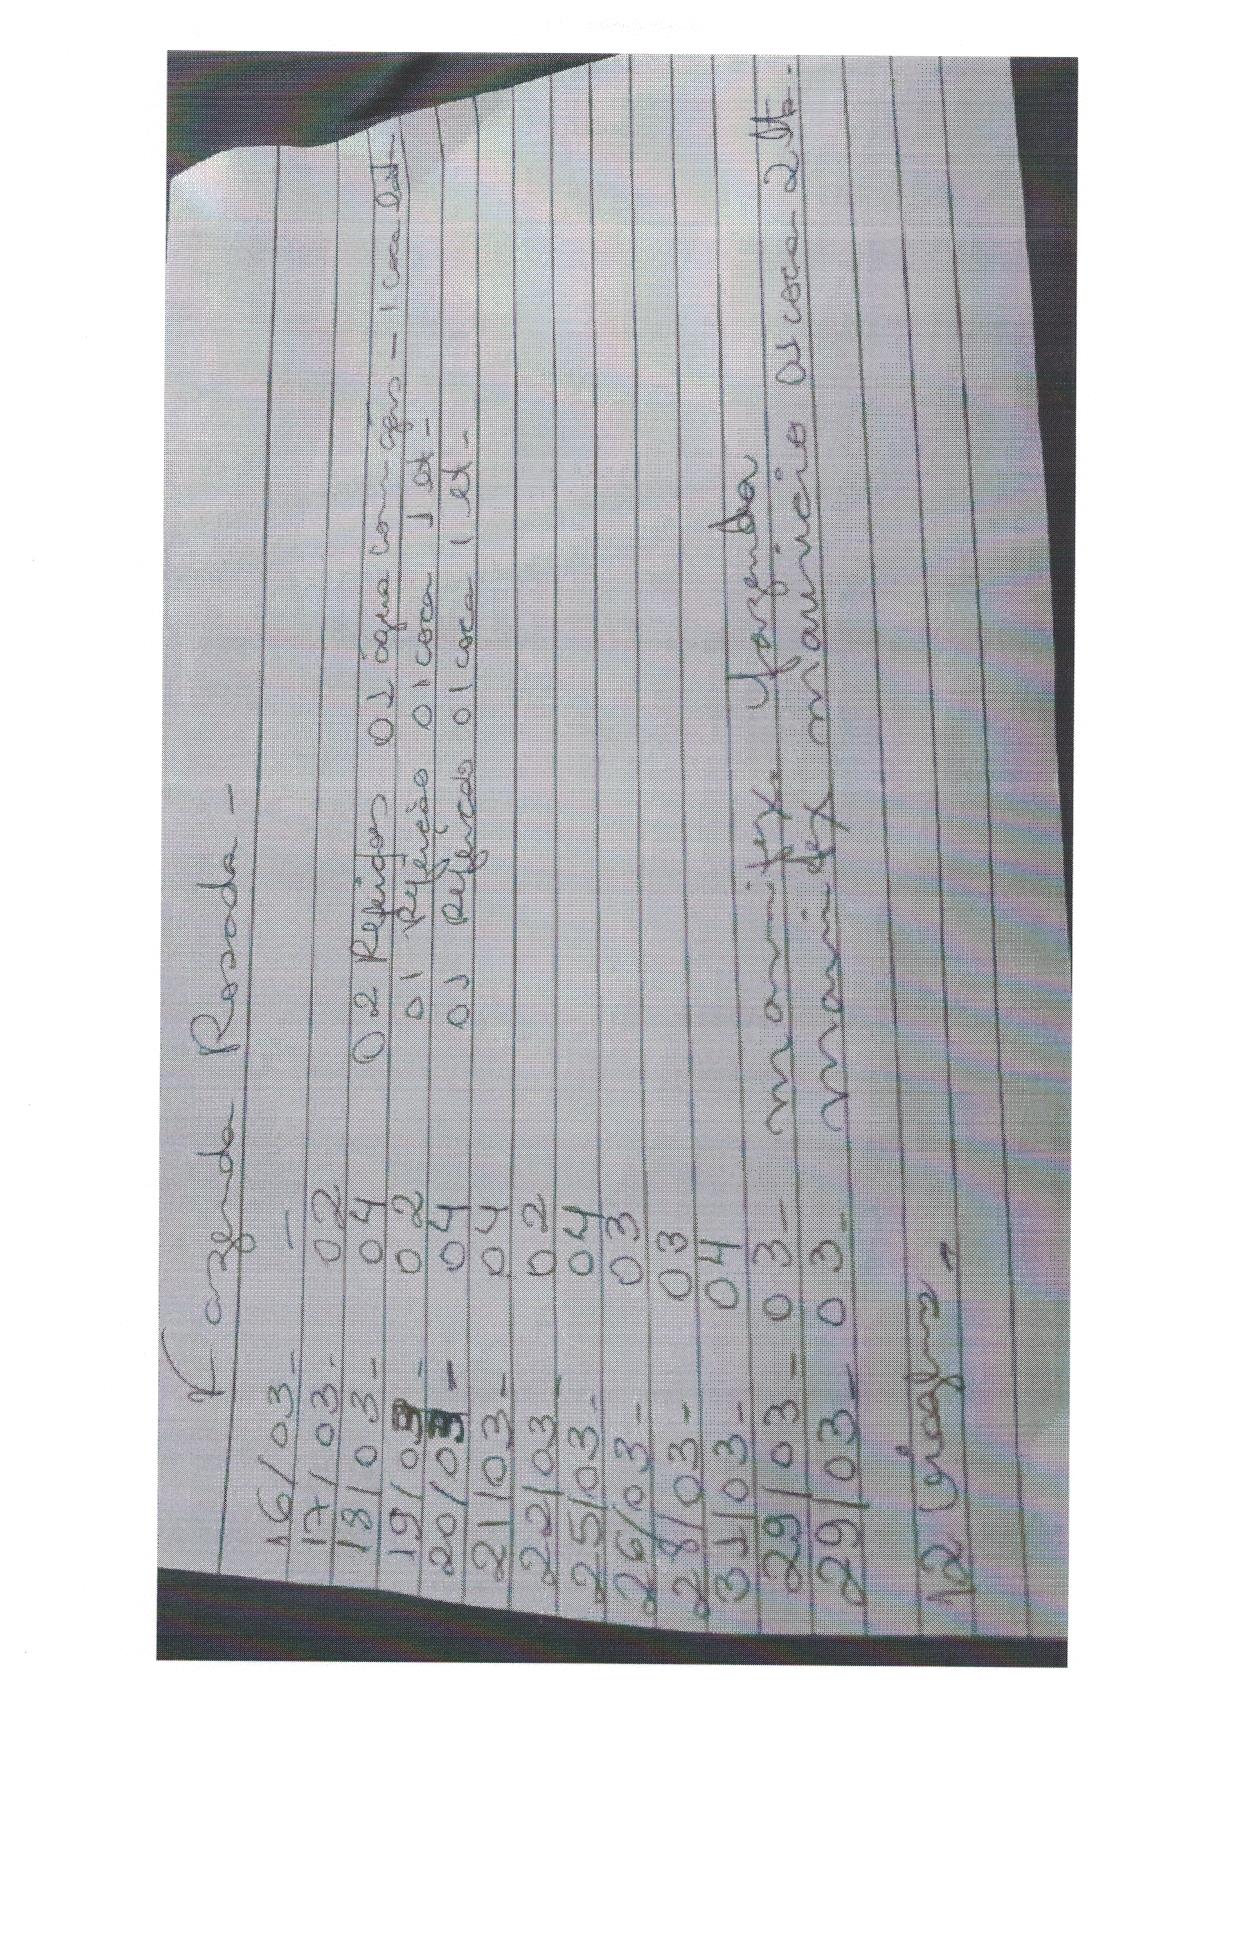 Fazenda Rosada -
16/03 - -
17/03 - 02
18/03 - 04 02 Refeições 02 água com gás - 1 coca lata
19/03 - 02 01 Refeição 01 coca 1 lt -
20/03 - 04 01 Refeição 01 coca 1 lt -
21/03 - 04
22/03 - 02
25/03 - 04
26/03 - 03
28/03 - 03
31/03 - 04
29/03 - 03 - marmitex Fazenda
29/03 - 03 - marmitex maurício 01 coca 2 lts.
12 -